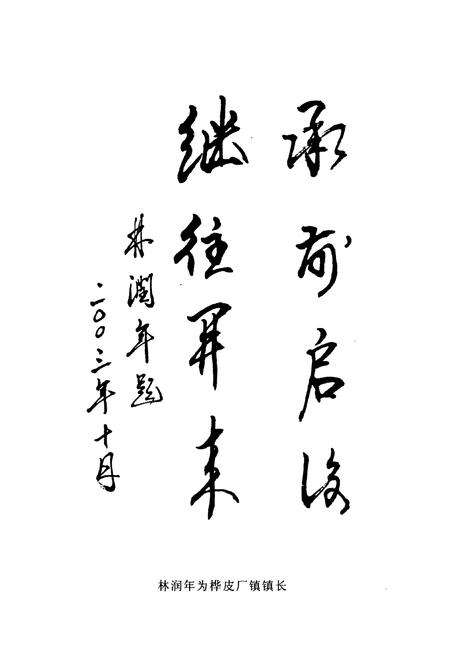 承前启后
继往开来
林润年题
二〇〇三年十月
林润年为桦皮厂镇镇长